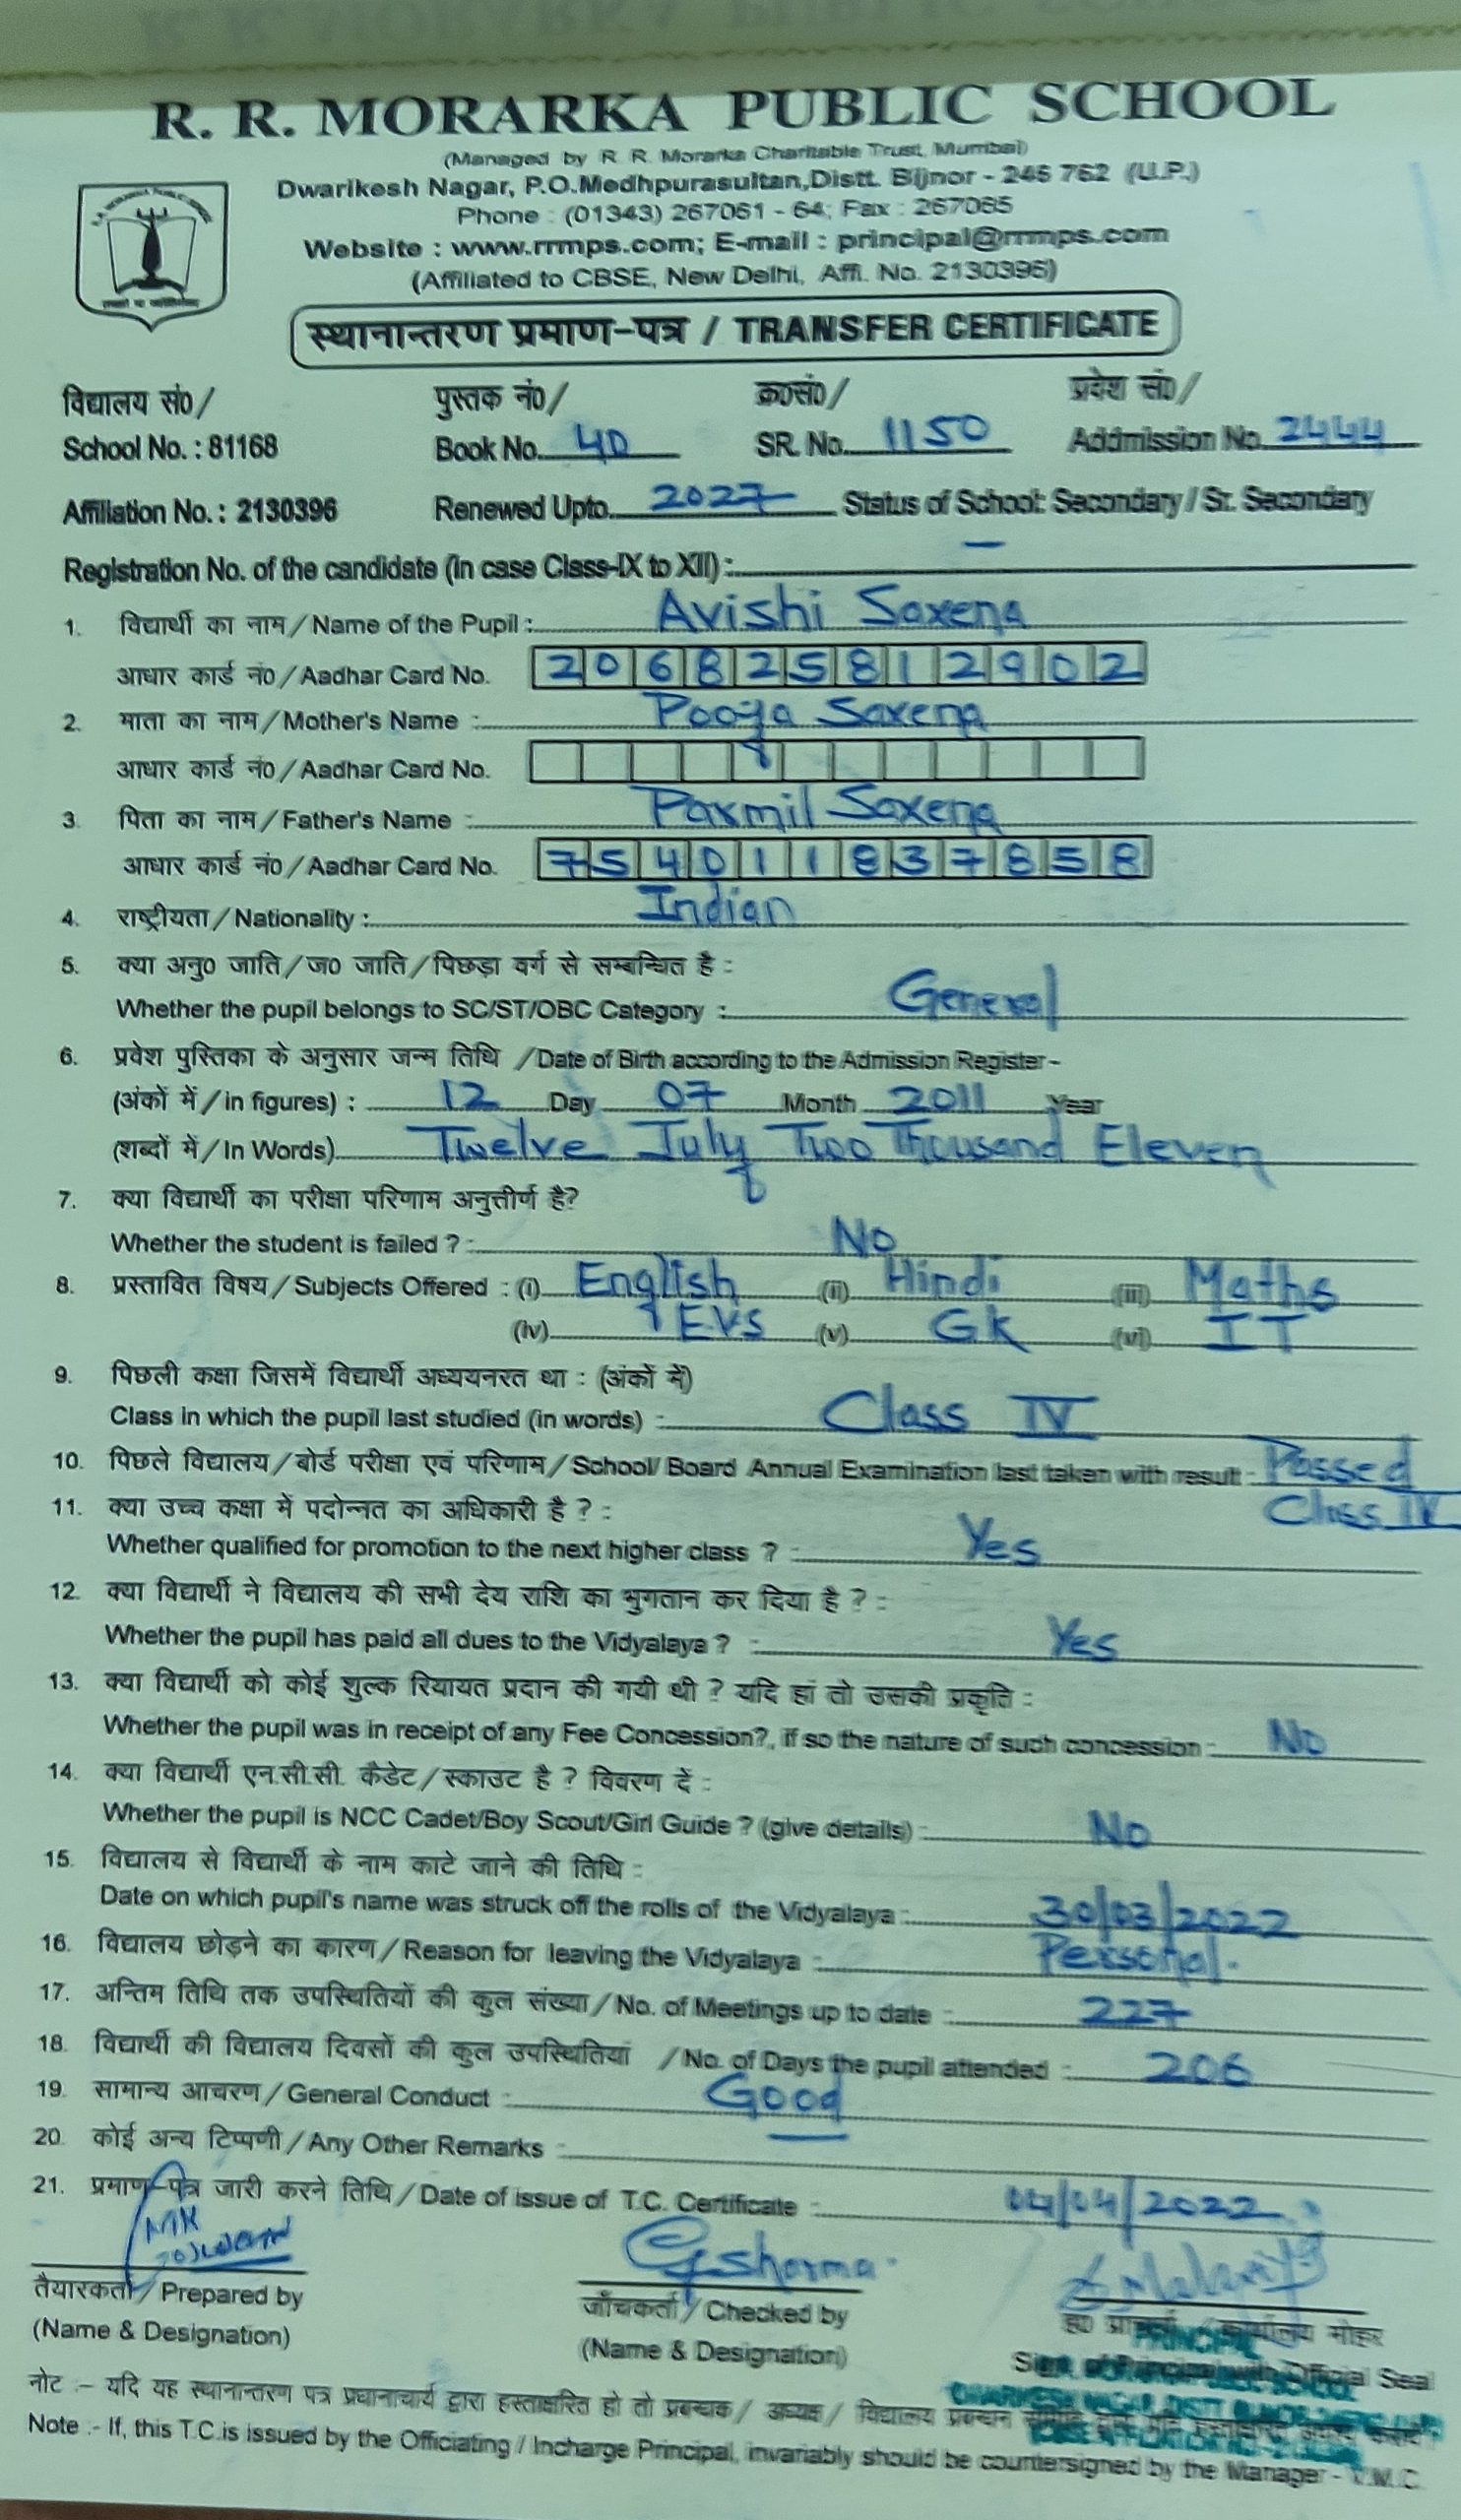 R. R. MORARKA PUBLIC SCHOOL
(Managed by R. R. Morarka Charitable Trust, Mumbai)
Dwarikesh Nagar, P.O.Medhpurasultan,Distt. Bijnor - 246 762 (U.P.)
Phone : (01343) 267061 - 64; Fax : 267065
Website : www.rrmps.com; E-mail : principal@rrmps.com
(Affiliated to CBSE, New Delhi, Affi. No. 2130396)
स्थानान्तरण प्रमाण-पत्र / TRANSFER CERTIFICATE
विद्यालय सं0/ पुस्तक नं0/ क्र0सं0/ प्रवेश सं0/
School No. : 81168 Book No. 40 SR. No. 1150 Addmission No. 2444
Affiliation No. : 2130396 Renewed Upto 2027 Status of School: Secondary / Sr. Secondary
Registration No. of the candidate (in case Class-IX to XII) : —
1. विद्यार्थी का नाम/Name of the Pupil : Avishi Saxena
आधार कार्ड नं0/Aadhar Card No. 206825812902
2. माता का नाम/Mother's Name : Pooja Saxena
आधार कार्ड नं0/Aadhar Card No.
3. पिता का नाम/Father's Name : Parmil Saxena
आधार कार्ड नं0/Aadhar Card No. 754011837858
4. राष्ट्रीयता/Nationality : Indian
5. क्या अनु0 जाति/ज0 जाति/पिछड़ा वर्ग से सम्बन्धित है :
Whether the pupil belongs to SC/ST/OBC Category : General
6. प्रवेश पुस्तिका के अनुसार जन्म तिथि /Date of Birth according to the Admission Register-
(अंकों में/in figures) : 12 Day 07 Month 2011 Year
(शब्दों में/In Words) Twelve July Two Thousand Eleven
7. क्या विद्यार्थी का परीक्षा परिणाम अनुत्तीर्ण है?
Whether the student is failed ? : No
8. प्रस्तावित विषय/Subjects Offered : (i) English (ii) Hindi (iii) Maths
(iv) EVS (v) GK (vi) IT
9. पिछली कक्षा जिसमें विद्यार्थी अध्ययनरत था : (अंकों में)
Class in which the pupil last studied (in words) : Class IV
10. पिछले विद्यालय/बोर्ड परीक्षा एवं परिणाम/School/ Board Annual Examination last taken with result : Passed
Class IV
11. क्या उच्च कक्षा में पदोन्नत का अधिकारी है ? :
Whether qualified for promotion to the next higher class ? : Yes
12. क्या विद्यार्थी ने विद्यालय की सभी देय राशि का भुगतान कर दिया है ? :
Whether the pupil has paid all dues to the Vidyalaya ? : Yes
13. क्या विद्यार्थी को कोई शुल्क रियायत प्रदान की गयी थी ? यदि हां तो उसकी प्रकृति :
Whether the pupil was in receipt of any Fee Concession?, if so the nature of such concession : No
14. क्या विद्यार्थी एन.सी.सी. कैडेट/स्काउट है ? विवरण दें :
Whether the pupil is NCC Cadet/Boy Scout/Girl Guide ? (give details) : No
15. विद्यालय से विद्यार्थी के नाम काटे जाने की तिथि :
Date on which pupil's name was struck off the rolls of the Vidyalaya : 30/03/2022
16. विद्यालय छोड़ने का कारण/Reason for leaving the Vidyalaya : Personal.
17. अन्तिम तिथि तक उपस्थितियों की कुल संख्या/No. of Meetings up to date : 227
18. विद्यार्थी की विद्यालय दिवसों की कुल उपस्थितियां /No. of Days the pupil attended : 206
19. सामान्य आचरण/General Conduct : Good
20. कोई अन्य टिप्पणी/Any Other Remarks : —
21. प्रमाण-पत्र जारी करने तिथि/Date of issue of T.C. Certificate : 04/04/2022
Sharma
तैयारकर्ता/Prepared by जाँचकर्ता/Checked by ह0 प्राचार्य / कार्यालय मोहर
(Name & Designation) (Name & Designation) Sign. of Principal with Official Seal
PRINCIPAL
नोट :- यदि यह स्थानान्तरण पत्र प्रधानाचार्य द्वारा हस्ताक्षरित हो तो प्रबन्धक/ अध्यक्ष/ विद्यालय प्रबन्धन
Note :- If, this T.C.is issued by the Officiating / Incharge Principal, invariably should be countersigned by the Manager - V.M.C.